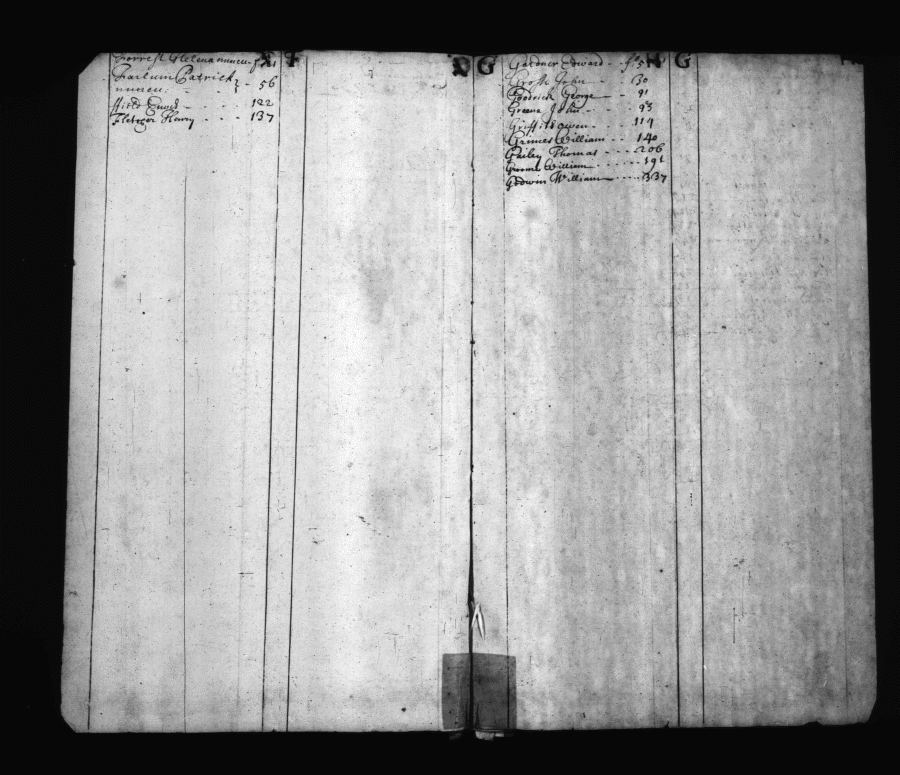 Forrest Helena nuncu: f 21
F
Farlum Patrick } - 56
nuncu:
ffield Edward - - 122
Fletcher Henry - - - 137
G
Gardner Edward - - fo 5
G
Grosse John - - 30
Goodrick George - 91
Greene John - - 93
Griffith Owen - - - 119
Grimes William - - 140
Gailey Thomas - - - 206
William - - - - - 191
Godwin William - - - - 337